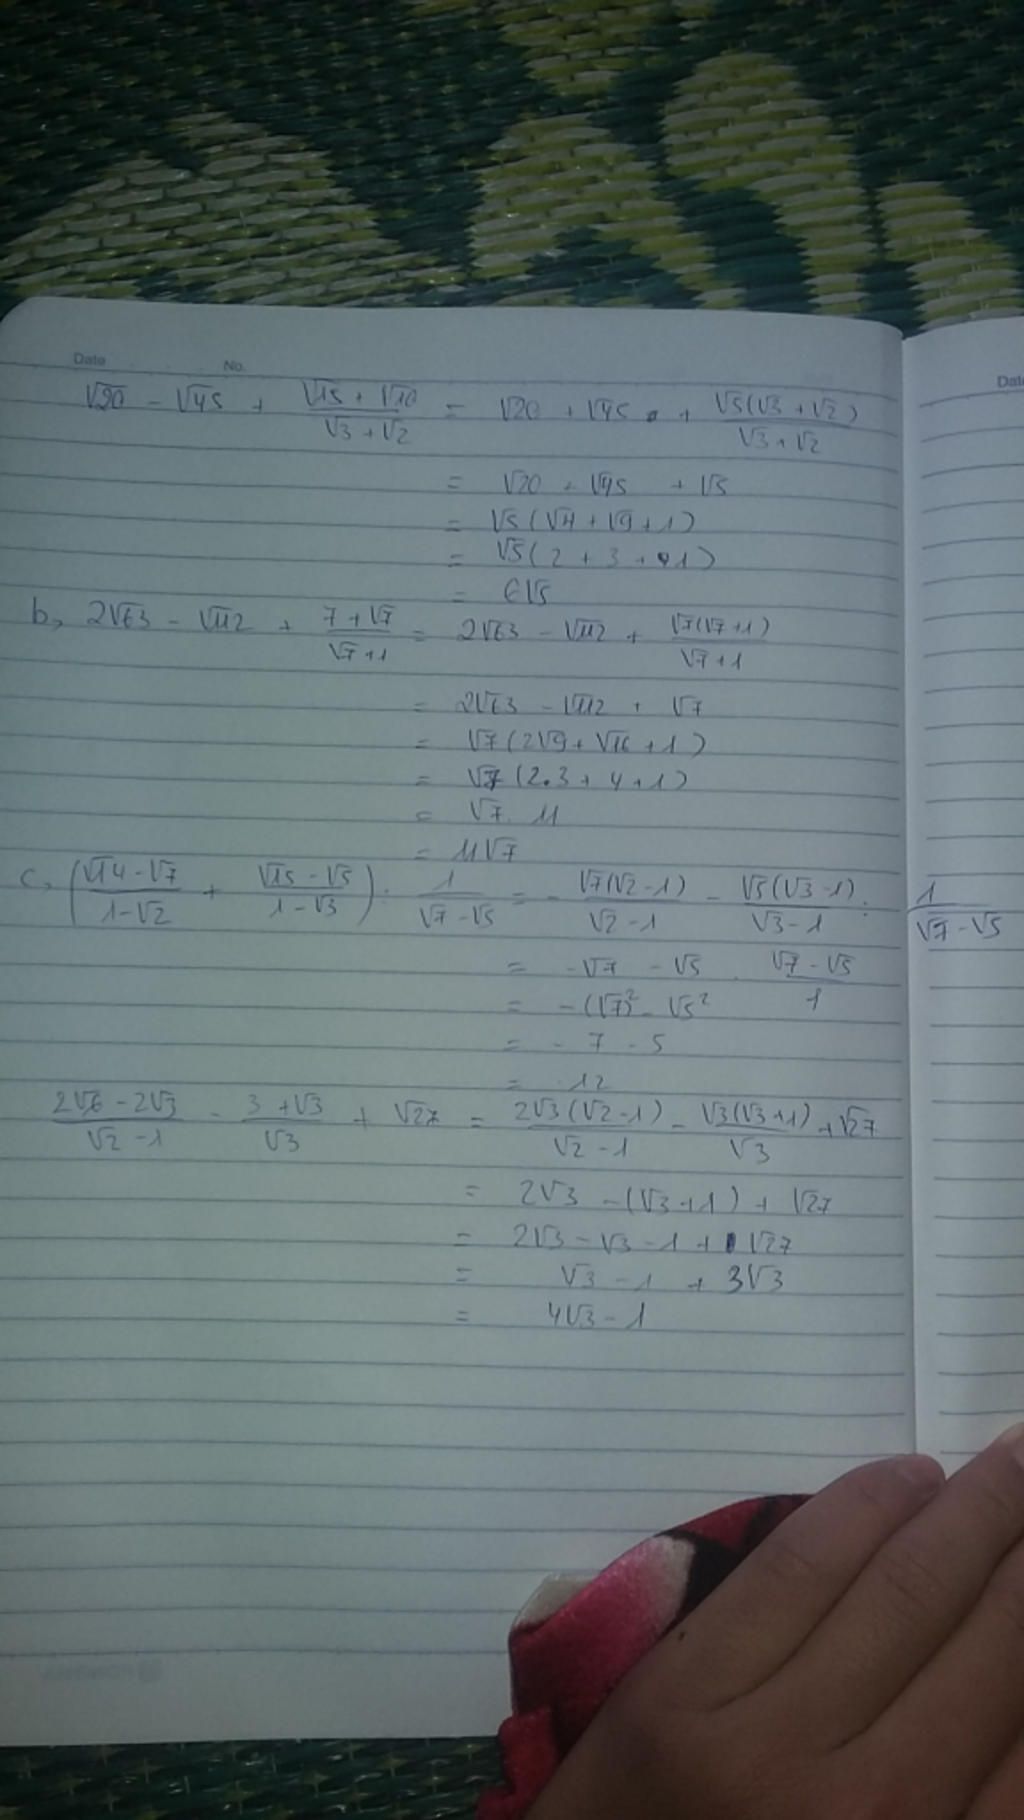 Date No. Date
√20 - √45 + (√15 + √10)/(√3 + √2) = √20 + √45 + √5(√3 + √2)/(√3 + √2)
= √20 + √45 + √5
= √5(√4 + √9 + 1)
= √5(2 + 3 + 1)
= 6√5
b, 2√63 - √112 + (7 + √7)/(√7 + 1) = 2√63 - √112 + √7(√7 + 1)/(√7 + 1)
= 2√63 - √112 + √7
= √7(2√9 + √16 + 1)
= √7(2.3 + 4 + 1)
= √7. 11
= 11√7
c, ((√14 - √7)/(1 - √2) + (√15 - √5)/(1 - √3)) : 1/(√7 - √5) = - √7(√2 - 1)/(√2 - 1) - √5(√3 - 1)/(√3 - 1) : 1/(√7 - √5)
= -√7 - √5 . (√7 - √5)/1
= -(√7)² - √5²
= - 7 - 5
= -12
(2√6 - 2√3)/(√2 - 1) - (3 + √3)/√3 + √27 = 2√3(√2 - 1)/(√2 - 1) - √3(√3 + 1)/√3 + √27
= 2√3 - (√3 + 1) + √27
= 2√3 - √3 - 1 + √27
= √3 - 1 + 3√3
= 4√3 - 1